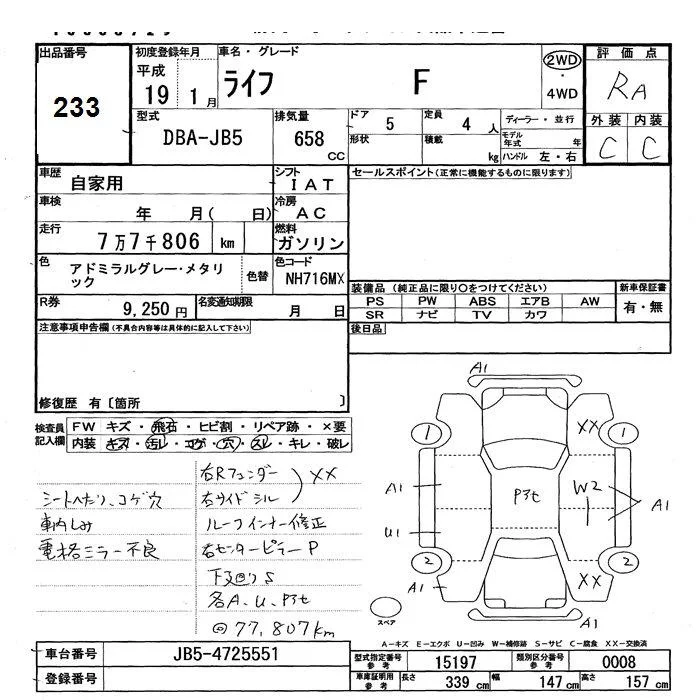 出品番号
233
初度登録年月
平成
19 1 月
車名・グレード
ライフ F
2WD
・
4WD
評価点
RA
外装 内装
C C
型式
DBA-JB5
排気量
658
CC
ドア 5
定員 4 人
形状
積載 kg
ディーラー・並行
モデル年式 年
ハンドル 左・右
車歴
自家用
シフト
IAT
車検
年 月( 日)
冷房
AC
走行
7万7千806 km
燃料
ガソリン
色
アドミラルグレー・メタリック
色替
色コード
NH716MX
R券
9,250円
名変通知期限
月 日
セールスポイント(正常に機能するものに限ります)
装備品 (純正品に限り○をつけてください)
PS PW ABS エアB AW
SR ナビ TV カワ
新車保証書
有・無
後日品
注意事項申告欄(不具合内容等は具体的に記入して下さい)
修復歴 有〔箇所 〕
検査員記入欄
FW キズ・飛石・ヒビ割・リペア跡・×要
内装 キズ・汚レ・コゲ・穴・スレ・キレ・破レ
シートへたり、コゲ穴
車内しみ
電格ミラー不良
右Rフェンダー
右サイドシル
XX
ルーフインナー修正
右センターピラーP
下廻りS
各A、U、Pアセ
@77,807km
A1
1
1
XX
A1
Pアセ
W2
A1
U1
2
2
A1
XX
A1
スペア
A-キズ E-エクボ U-凹み W-補修跡 S-サビ C-腐食 XX-交換済
車台番号
JB5-4725551
登録番号
型式指定番号参考
15197
類別区分番号参考
0008
車庫証明用参考
長さ 339 cm
幅 147 cm
高さ 157 cm